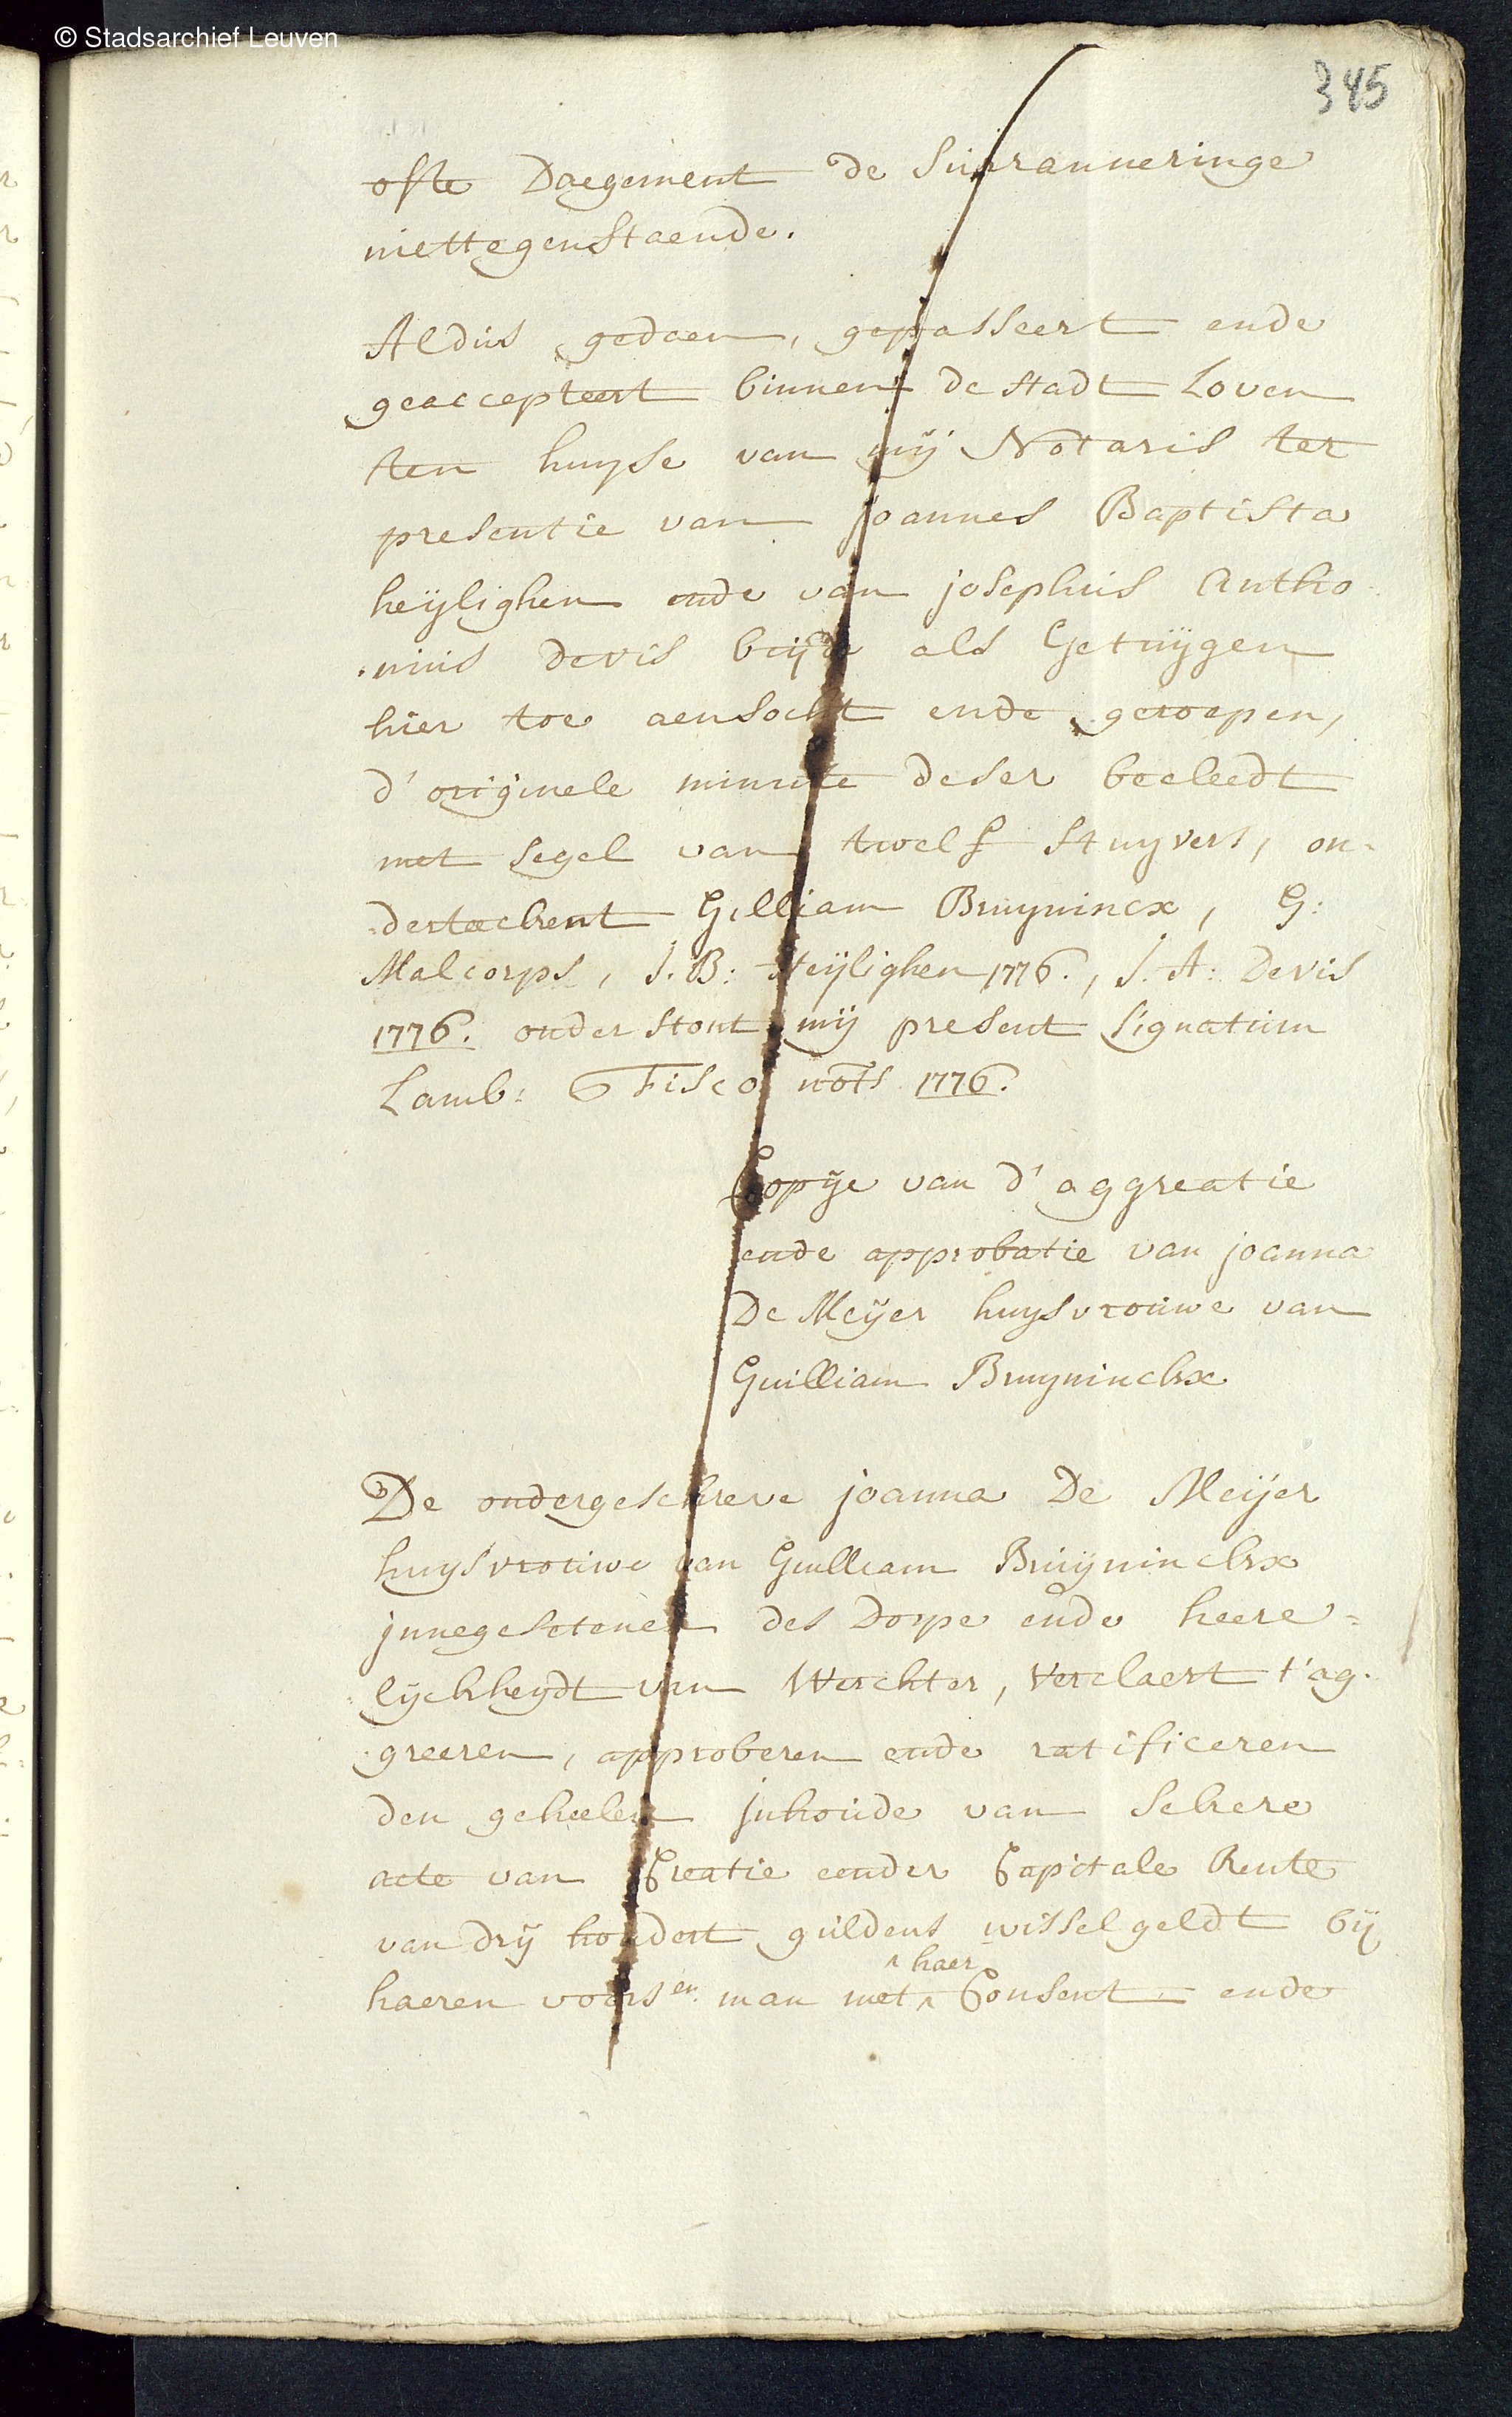 © Stadsarchief Leuven
345
ofte Daegement de Surranneringe
niettegenstaende.
Aldus gedaen, gepasseert ende
geaccepteert binnen de stadt Loven
ten huyse van mij Notaris ter
presentie van joannes Baptista
heijlighen ende van josephus antho
nius devis beijde als Getuijgen
hier toe aensocht ende geroepen,
d'originele minute deser becleedt
met segel van twelf stuyvers, on-
derteekent Gilliam Bruynincx, G:
Malcorps, J. B: Heijlighen 1776., J. A: Devis
1776. onder stont mij present signatum
Lamb: Fisco nots 1776.
Copije van d'aggreatie
ende approbatie van joanna
De Meijer huysvrouwe van
Guilliam Bruyninckx
De ondergeschreve joanna De Meijer
huysvrouwe van Guilliam Bruijninckx
jnnegesetenen des Dorpe ende heere=
lyckheydt van Werchter, Verclaert t'ag-
greeren, approberen ende ratificeren
den geheelen jnhoude van sekere
acte van Creatie eender Capitale Rente
van drij hondert guldens wisselgeldt bij
haeren voorsen. man met ^ haer Consent ende